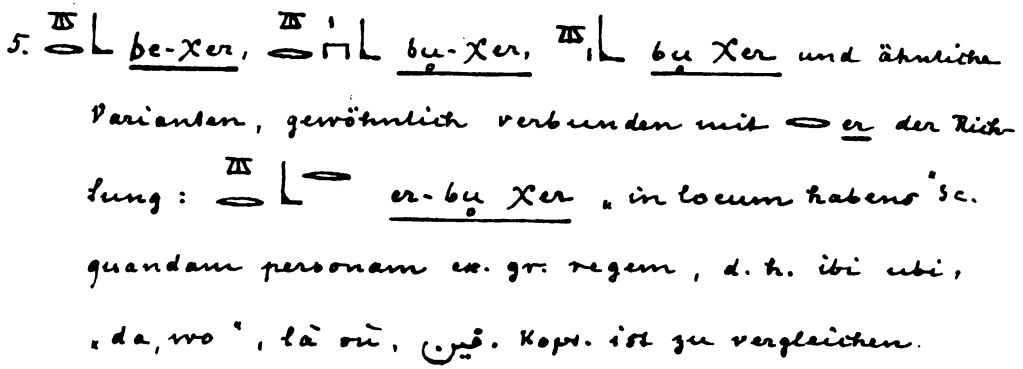 5. be-χer, bu̥-χer, bu̥ χer und ähnliche
Varianten, gewöhnlich verbunden mit er der Rich-
tung: er-bu̥ χer „in locum habens" sc.
quandam personam ex. gr. regem, d. h. ibi ubi,
„da, wo", là où, فين. Kopt. ist zu vergleichen.